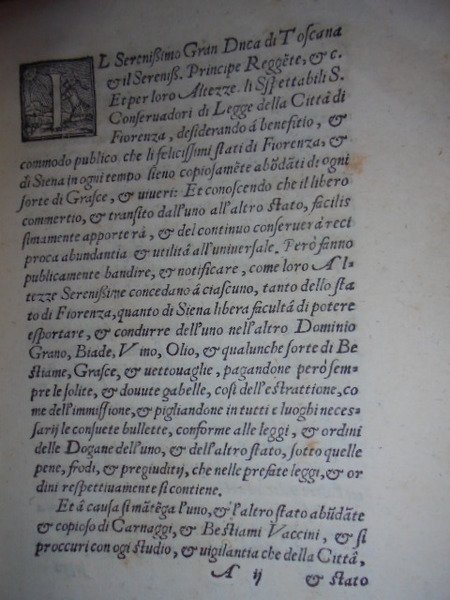 IL Serenißimo Gran Duca di Toscana
& il Sereniß. Principe Reggẽte, & c.
Et per loro Altezze. li Spettabili S.
Conseruadori di Legge della Città di
Fiorenza, desiderando á benefitio, &
commodo publico che li felicissimi stati di Fiorenza, &
di Siena in ogni tempo sieno copiosamẽte abũdãti di ogni
sorte di Grasce, & uiueri: Et conoscendo che il libero
commertio, & transito dall'uno all'altro stato, facilis
simamente apporterá, & del continuo conseruerá reci
proca abundantia & utilitá all'uniuersale. Peró fanno
publicamente bandire, & notificare, come loro Al
tezze Serenißime concedano á ciascuno, tanto dello sta
to di Fiorenza, quanto di Siena libera facultá di potere
esportare, & condurre dell'uno nell'altro Dominio
Grano, Biade, Vino, Olio, & qualunche sorte di Be
stiame, Grasce, & uettouaglie, pagandone peró sem-
pre le solite, & douute gabelle, cosi dell'estrattione, co
me dell'immissione, & pigliandone in tutti e luoghi neces-
sarij le consuete bullette, conforme alle leggi, & ordini
delle Dogane dell'uno, & dell'altro stato, sotto quelle
pene, frodi, & pregiuditij, che nelle prefate leggi, & or
dini respettiuamente si contiene.
Et á causa si mãtẽga l'uno, & l'altro stato abũdãte
& copioso di Carnaggi, & Bestiami Vaccini, & si
proccuri con ogi studio, & uigilantia che della Cittá,
A ij & stato